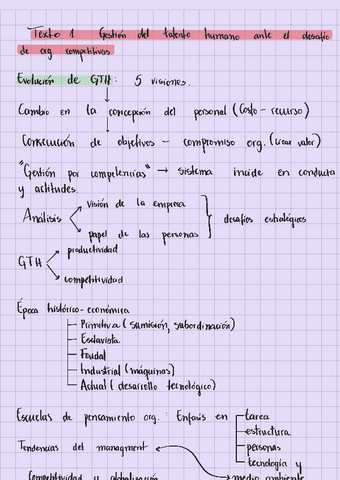 Texto 1 Gestión del talento humano ante el desafío
de org competitivas.
Evolución de GTH: 5 visiones.
Cambio en la concepción del personal (Costo - recurso)
Consecución de objetivos - compromiso org. (crear valor)
"Gestión por competencias" → sistema incide en conducta
y actitudes.
Análisis visión de la empresa
papel de las personas
desafíos estratégicos
GTH productividad
competitividad
Época histórico-económica
Primitiva (sumisión, subordinación)
Esclavista
Feudal
Industrial (máquinas)
Actual (desarrollo tecnológico)
Escuelas de pensamiento org. : Énfasis en tarea
estructura
personas
tecnología y
medio ambiente
Tendencias del managment
Competitividad y globalización